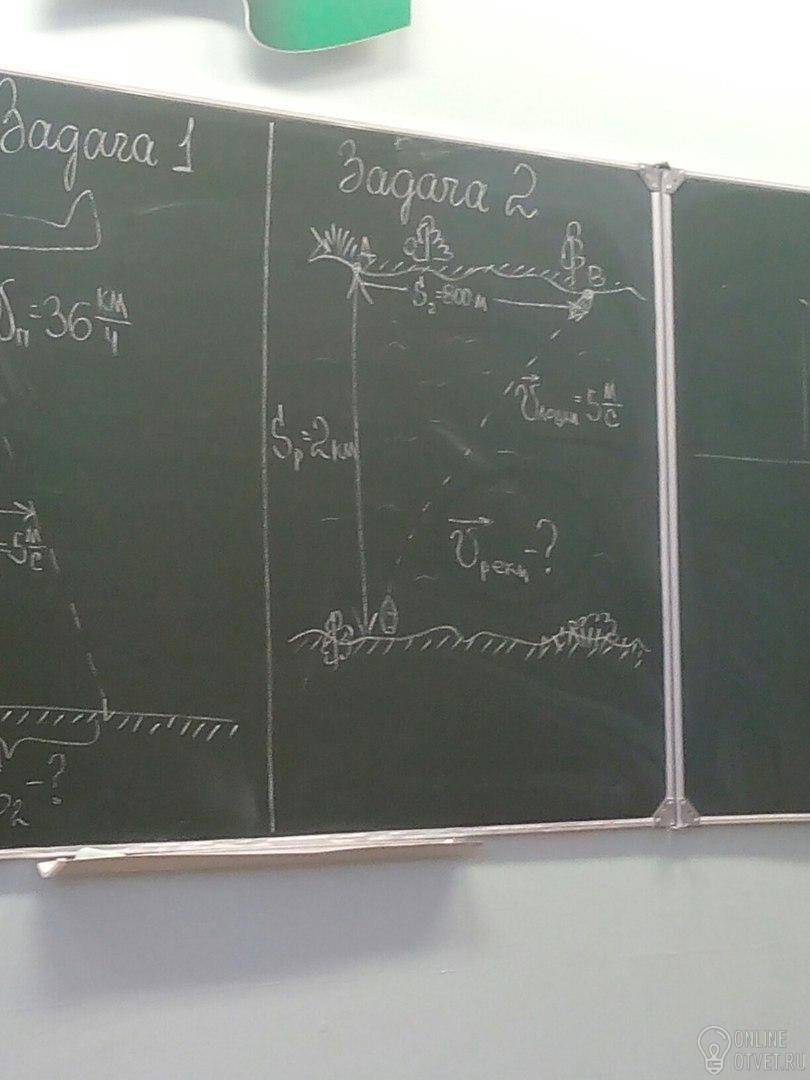 Задача 1
= 36 км/ч
= 5 м/с
- ?
Задача 2
A
B
S₂ = 800 м
= 5 м/с
Sр = 2 км
υ реки - ?
ONLINE
OTVET.RU